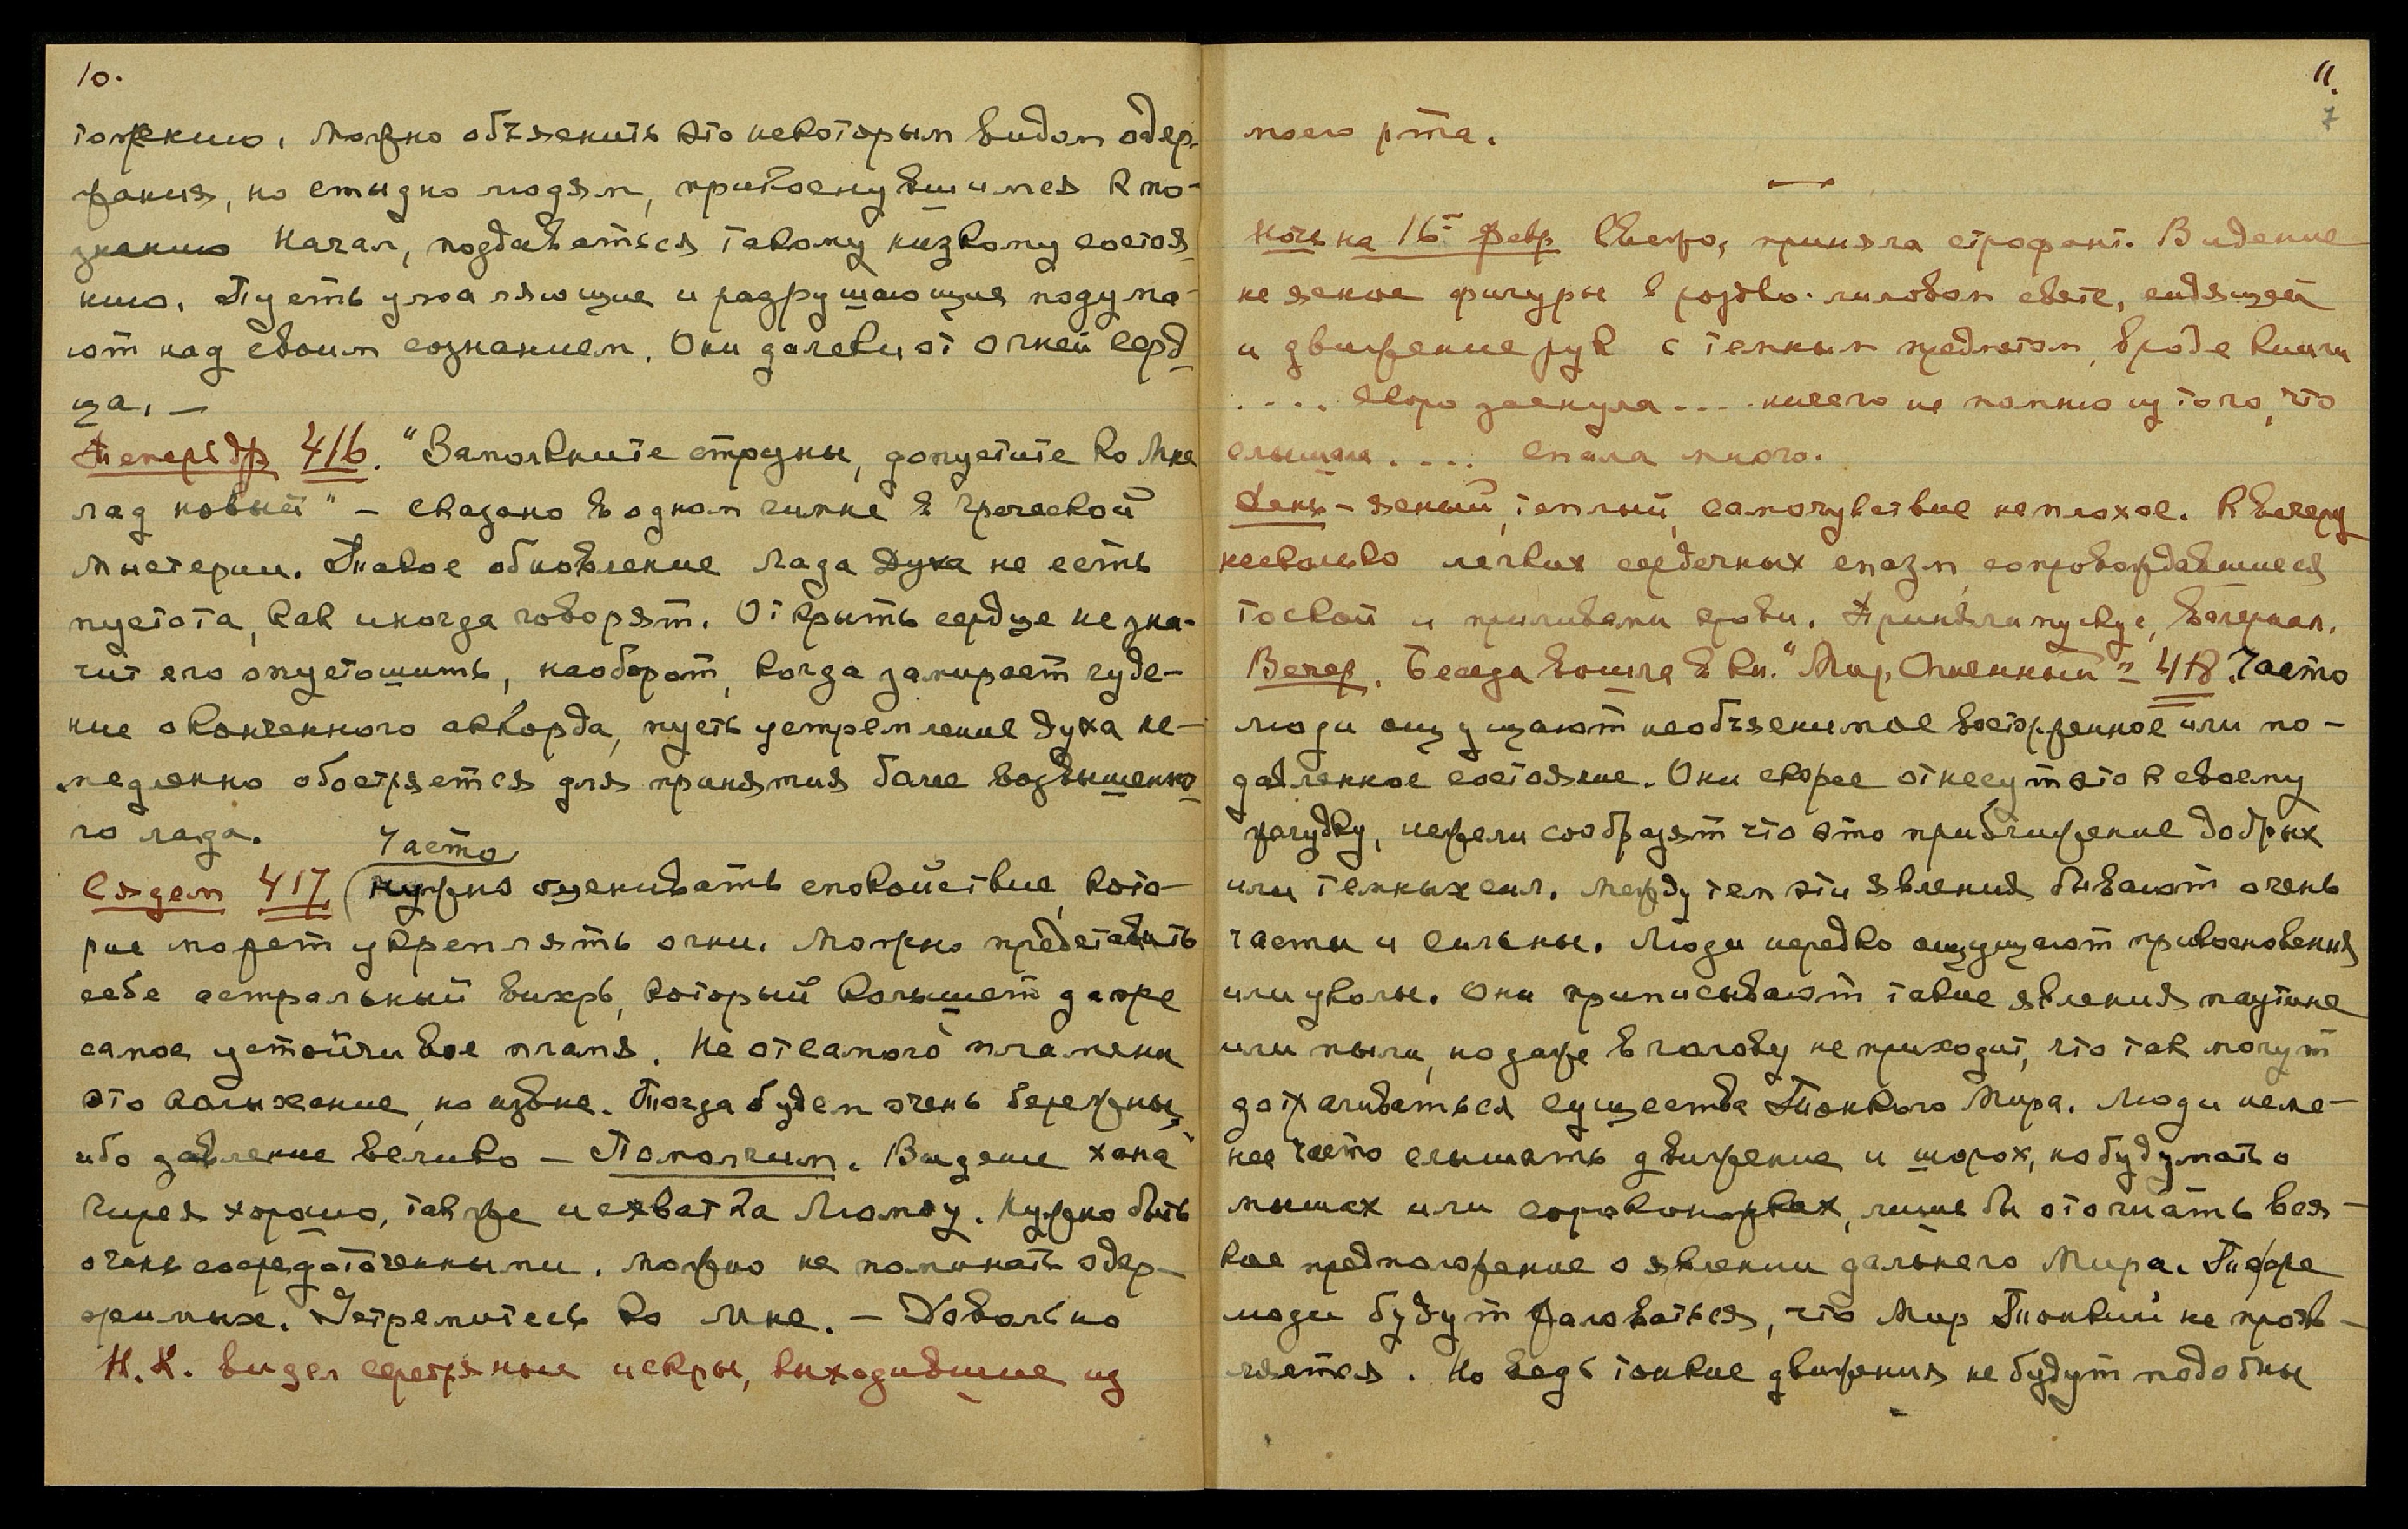 10.
тожению. Можно объяснить это некоторым видом одер-
жания, но стыдно людям, прикоснувшимся к по-
знанию Начал, поддаваться такому низкому состоя-
нию. Пусть умаляющие и разрушающие подума-
ют над своим сознанием. Они далеки от огней серд-
ца. —
Теперь др 416. "Замолкните струны, допустите ко Мне
лад новый" — сказано в одном гимне в греческой
Мистерии. Такое обновление лада духа не есть
пустота, как иногда говорят. Открыть сердце не зна-
чит его опустошить, наоборот, когда замирает гуде-
ние оконченного аккорда, пусть устремление духа не-
медленно обостряется для принятия более возвышенно-
го лада.
Часто
Сядем 417. (Нужно оценивать спокойствие, кото-
рое может укреплять огни. Можно представить
себе астральный вихрь, который колышет даже
самое устойчивое пламя. Не от самого пламени
это колыхание, но извне. Тогда будем очень бережны,
ибо давление велико — Помолчим. Видение хана
Гирея хорошо, также и схватка Люмоу. Нужно быть
очень сосредоточенными. Можно не поминать одер-
жимых. Устремитесь ко Мне. — Довольно
Н.К. видел серебряные искры, выходившие из
11.
7
моего рта.
—
Ночь на 16-е февр Свежо, приняла строфант. Видение
не ясное фигуры в розово-лиловом свете, сидящей
и движение рук с темным предметом, вроде книги
.... скоро заснула.... ничего не помню из того, что
слышала.... спала много.
День — ясный, теплый, самочувствие неплохое. К вечеру
несколько легких сердечных спазм, сопровождавшиеся
тоской и приливами крови. Приняли мускус, валериан.
Вечер. Беседа вошла в кн. "Мир Огненный" = 418. Часто
люди ощущают необъяснимое восторженное или по-
давленное состояние. Они скорее отнесут это к своему
желудку, нежели сообразят что это приближение добрых
или темных сил. Между тем эти явления бывают очень
часты и сильны. Люди нередко ощущают прикосновения
или уколы. Они приписывают такие явления паутине
или пыли, но даже в голову не приходит, что так могут
дотрагиваться существа Тонкого Мира. Люди неме-
нее часто слышать движение и шорох, но будут думать о
мышах или сороконожках, лишь бы отогнать вся-
кое предположение о явлении дальнего Мира. Те же
люди будут жаловаться, что Мир Тонкий не прояв-
ляется. Но ведь тонкие движения не будут подобны